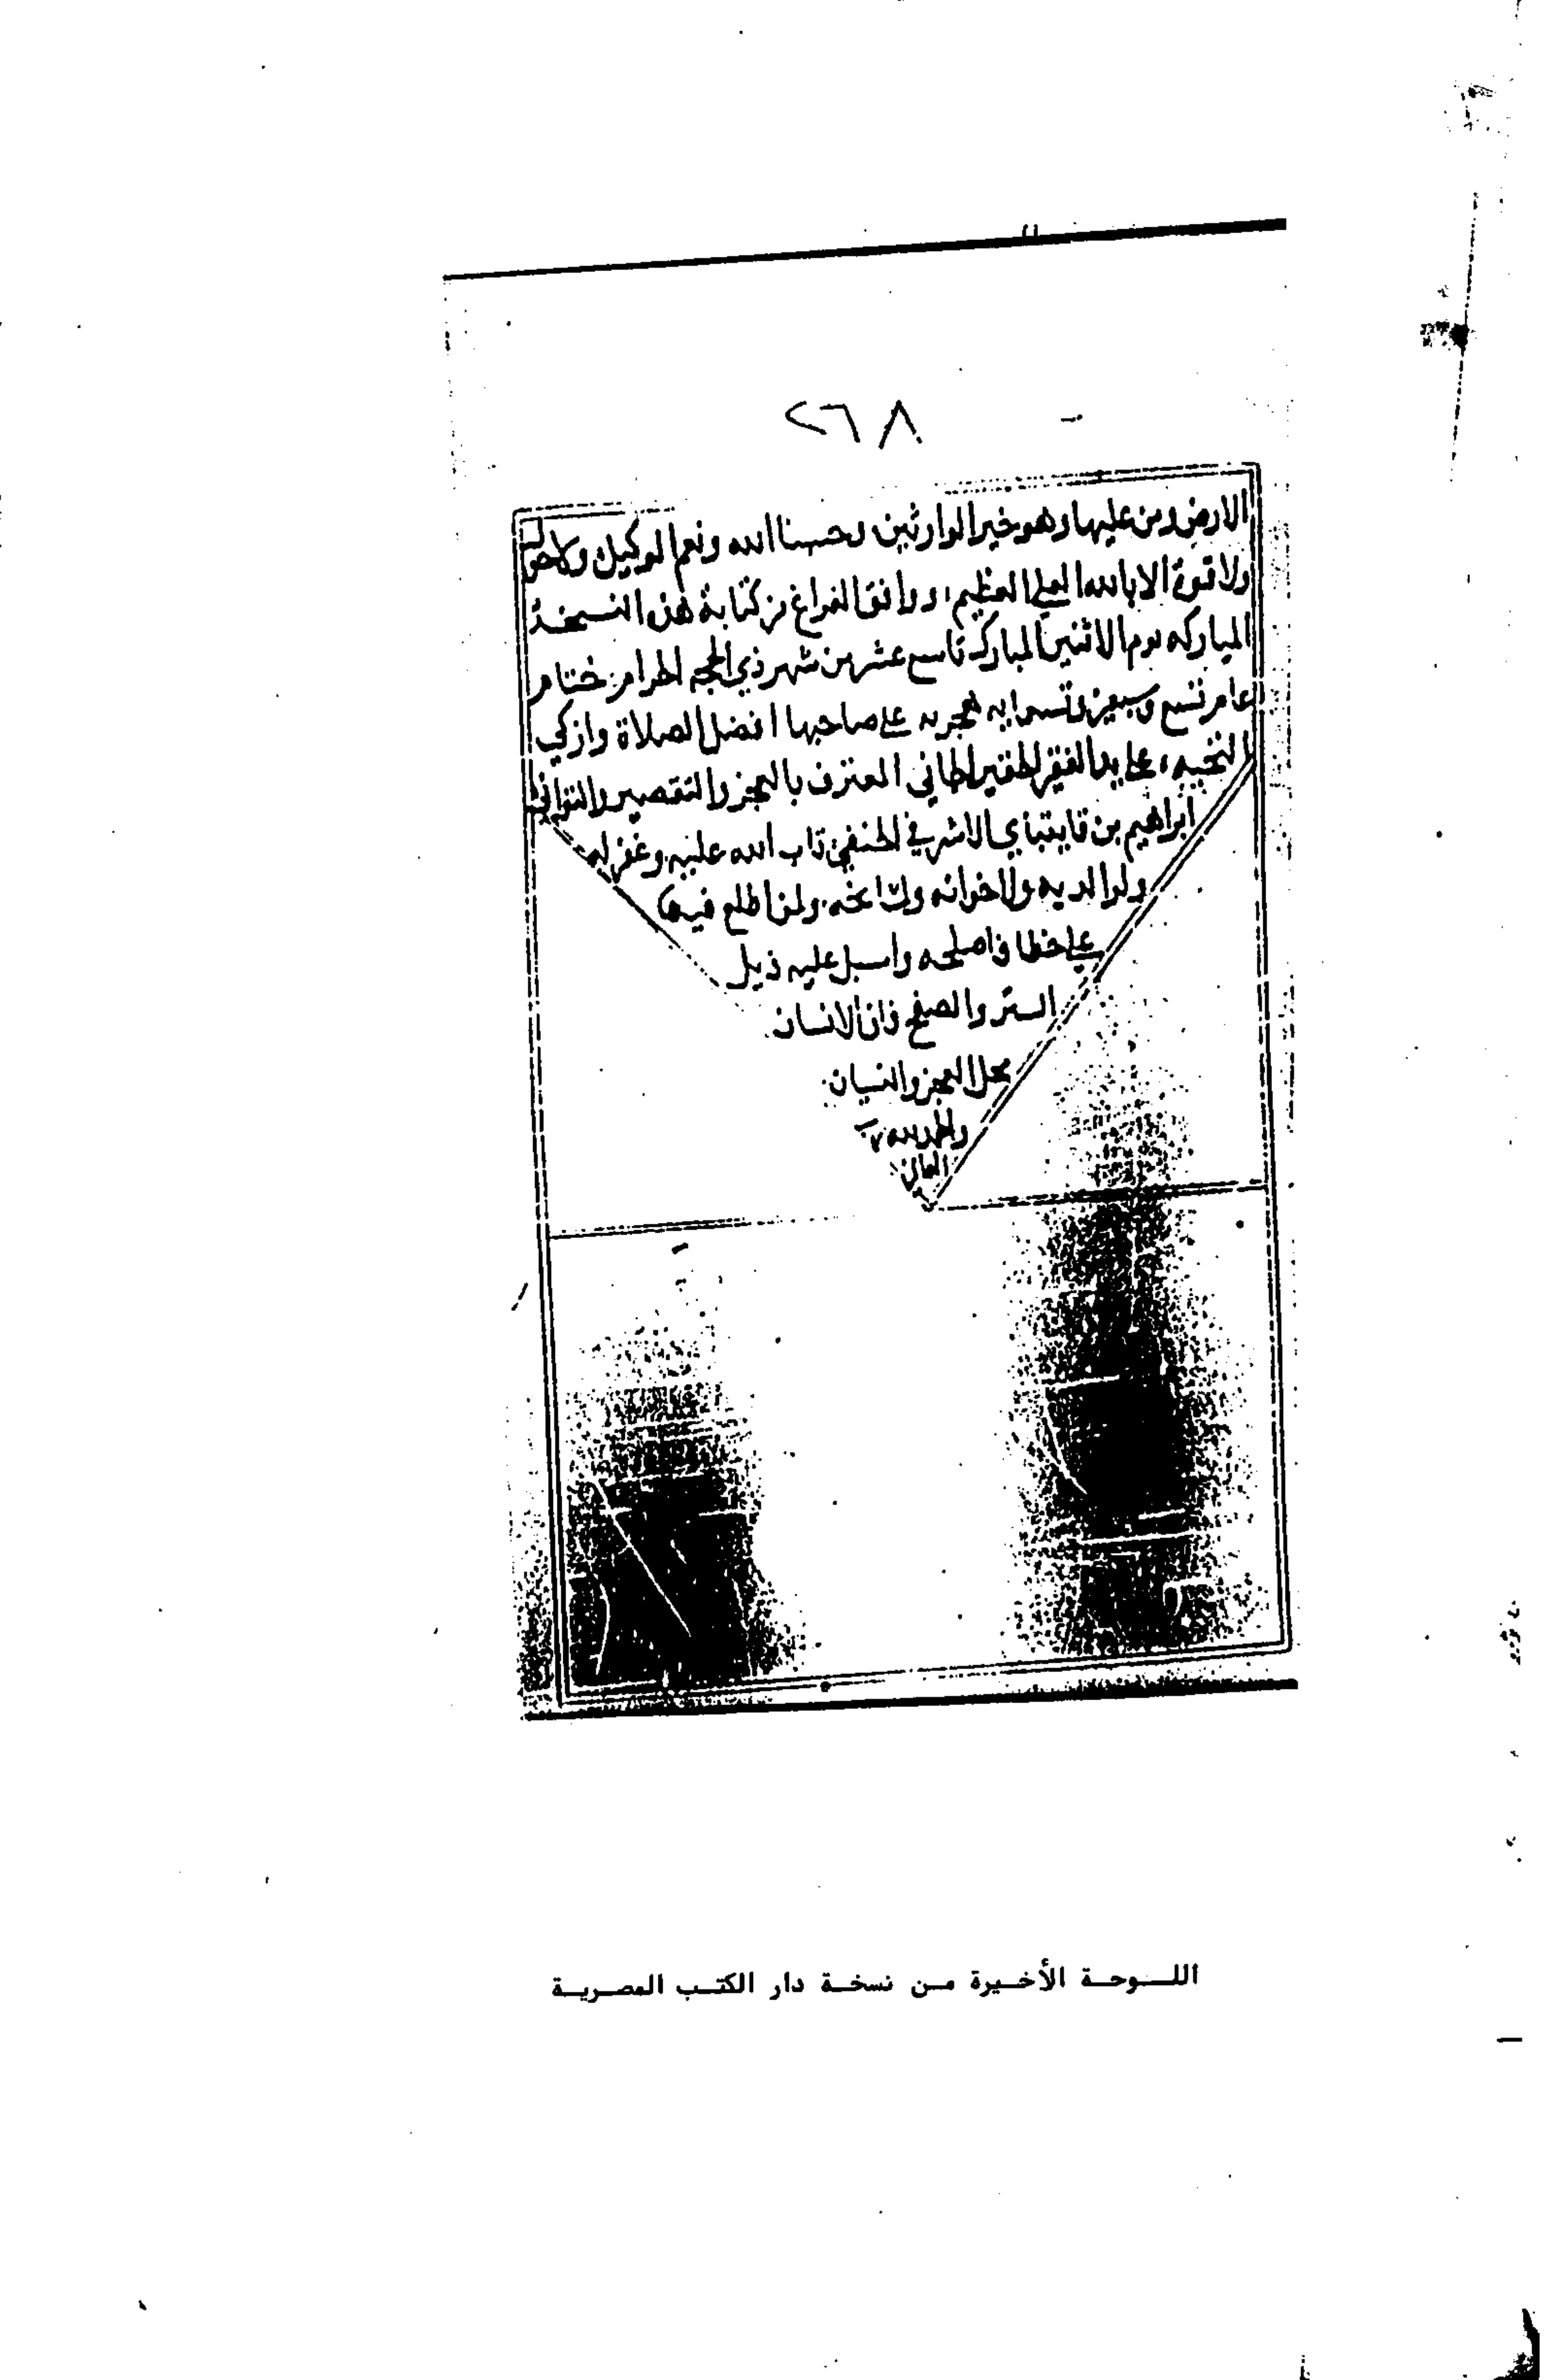 ٢٦٨
الارض ومن عليها وهو خير الوارثين وحسبنا الله ونعم الوكيل ولاحول
ولا قوة الا بالله العلي العظيم، ووافق الفراغ من كتابة هذه النسخة
المباركه يوم الاثنين المبارك تاسع عشر من شهر ذي الحجه الحرام ختام
عام تسع وسبعين وتسمايه هجريه على صاحبها افضل الصلاة وازكي
التحيه، على يد الفقير الحقير الجاني المعترف بالعجز والتقصير والتواني
ابراهيم بن قايتباي الاشرفي الحنفي تاب الله عليه وغفر له
ولوالديه ولاخوانه ومشايخه ولمن اطلع فيها
على خطا فاصلحه واسبل عليه ذيل
الستر والصفح فان الانسان
محل العجز والنسيان
والحمد لله رب
العالمين
اللوحة الأخيرة من نسخة دار الكتب المصرية